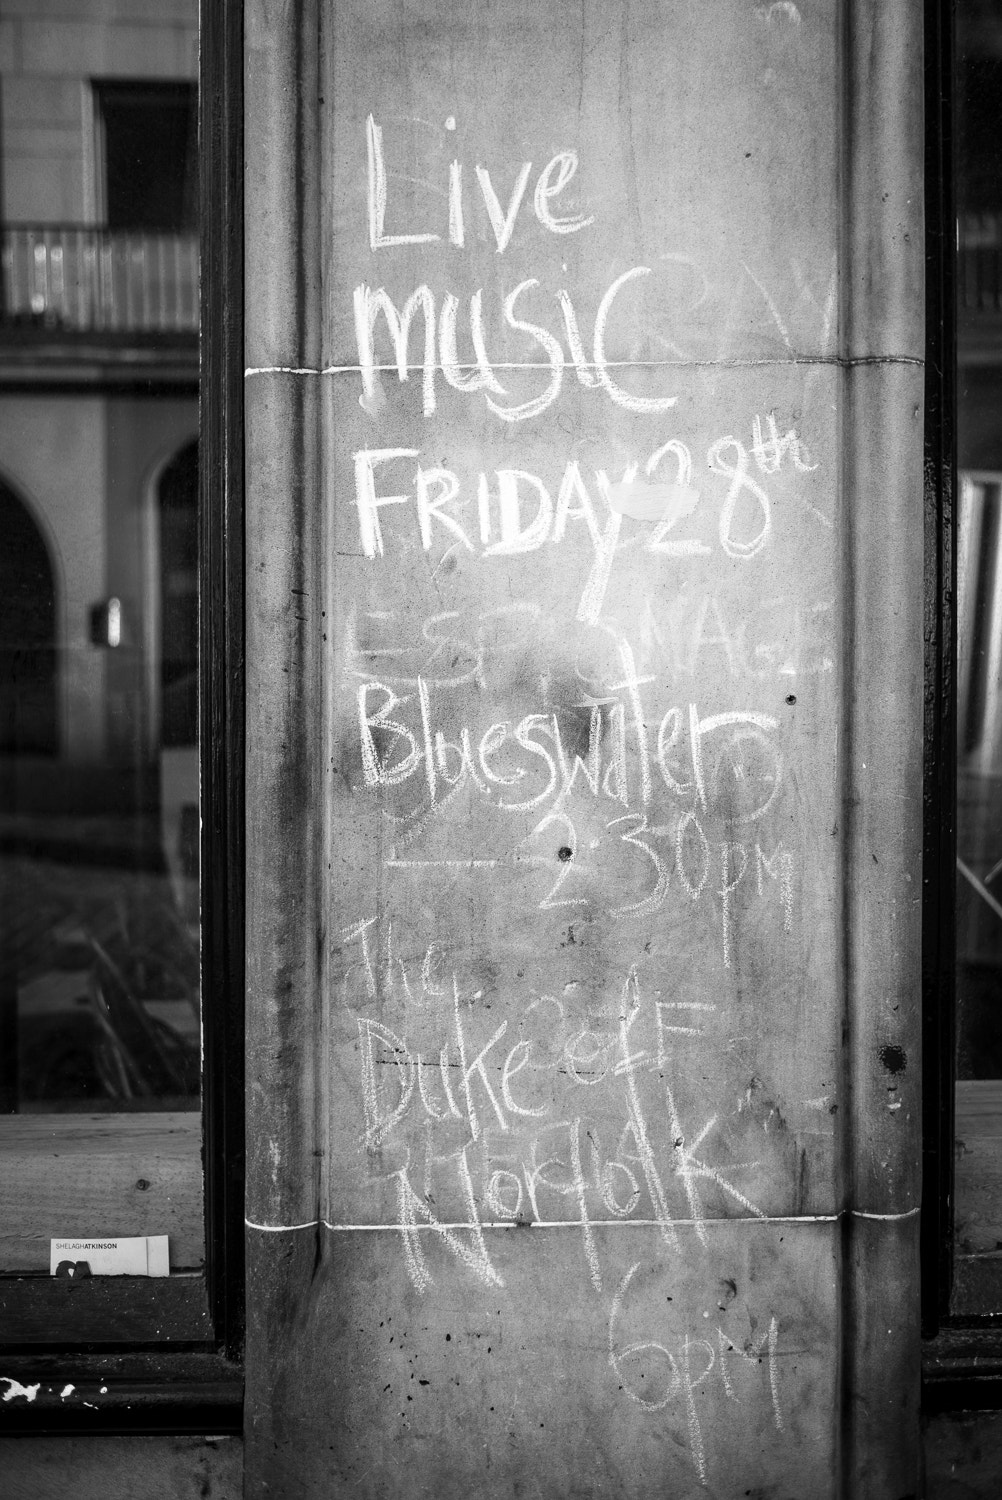 Live
music
FRIDAY 28th
ESPIONAGE
Blueswater
2.30pm
The
Duke of
Norfolk
6pm
SHELAGHATKINSON